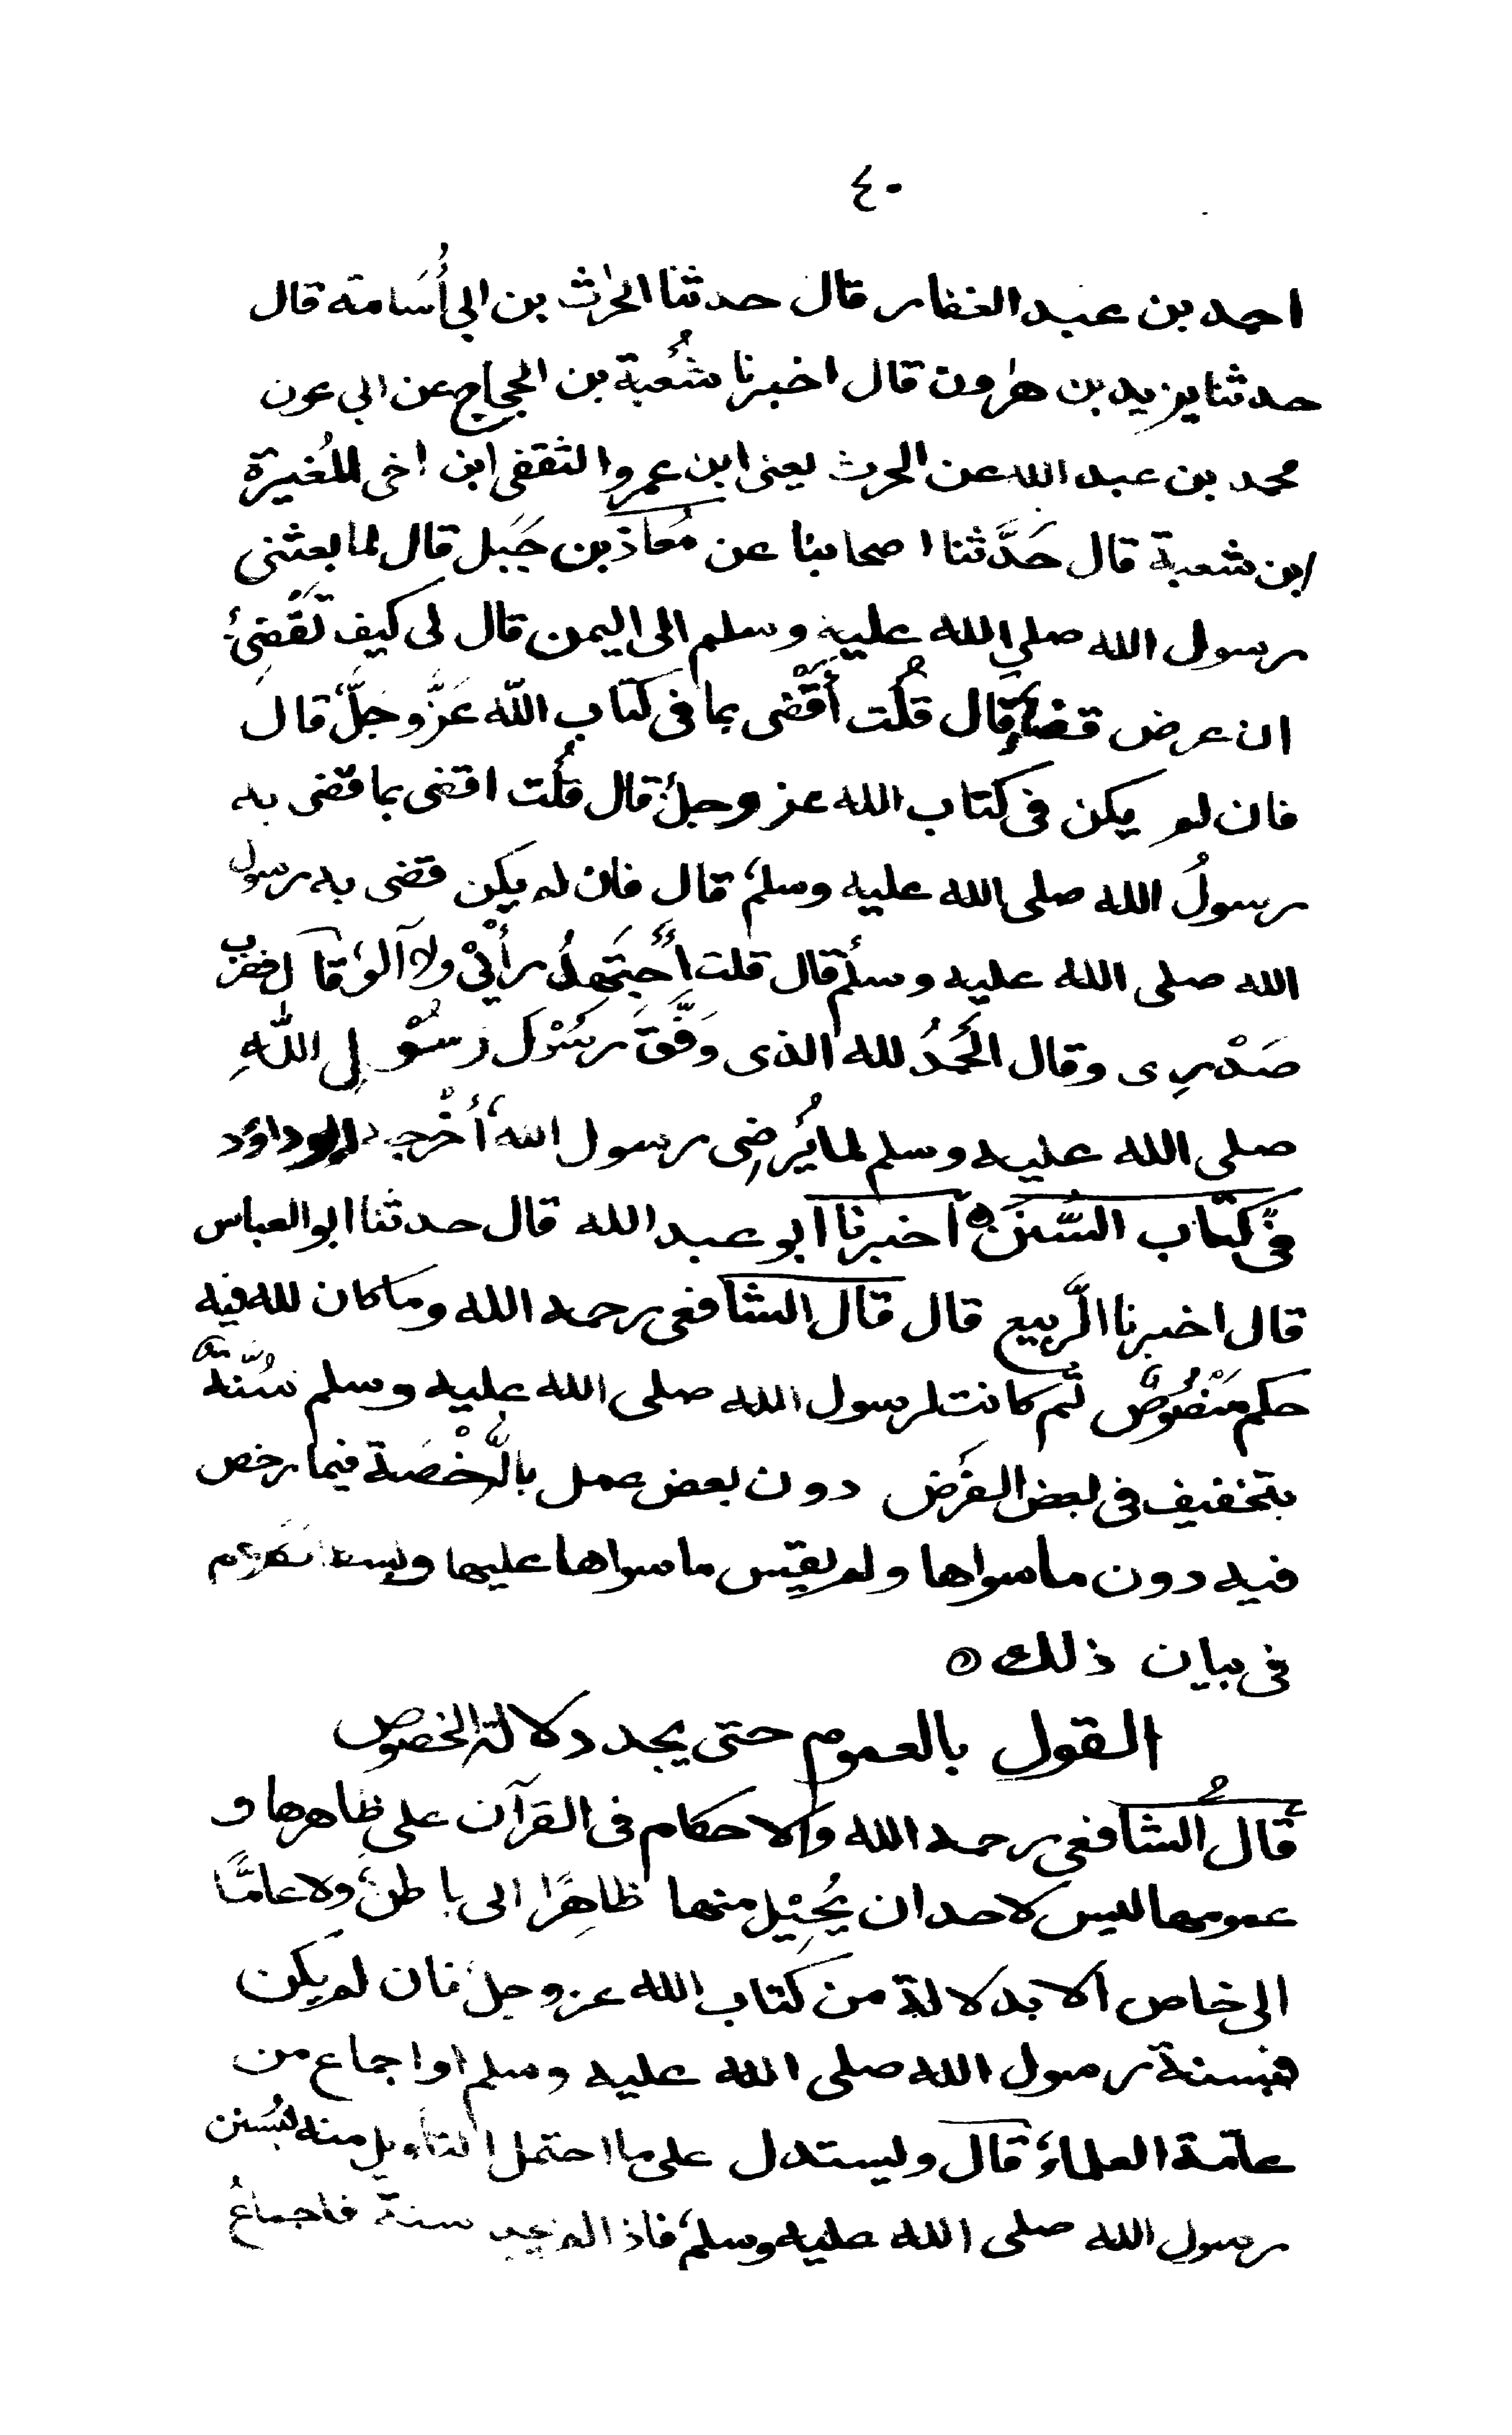 ٤٠
احمد بن عبد الغفار قال حدثنا الحٰرث بن ابي أُسَامة قال
حدثنا يزيد بن هٰرون قال اخبرنا شُعبة بن الحجاج عن ابي عون
محمد بن عبد الله عن الحرث يعنى ابن عمرو الثقفى ابن اخى المُغيرة
ابن شعبة قال حَدَّثنا اصحابنا عن مُعَاذ بن جَبَل قال لما بعثنى
رسول الله صلي الله عليه وسلم الى اليمن قال لى كيف تَقْضِىْ
ان عرض قضاء قال قُلت أَقْضى بما فى كتاب الله عَزَّ وجَلَّ قال
فان لم يكن فى كتاب الله عز وجل قال قُلت اقضى بما قضى به
رسولُ الله صلى الله عليه وسلم قال فان لم يكن قضى به رسول
الله صلى الله عليه وسلم قال قلت أَجْتَهِدُ رأْيِىْ ولا آلو قال فضرب
صَدْرِى وقال الحَمْدُ لله الذى وَفَّقَ رَسُوْلَ رَسُوْلِ اللهِ
صلى الله عليه وسلم لما يُرضِى رسول الله أَخْرجه ابو داؤد
فى كتاب السُّنَن ۝ اخبرنا ابو عبد الله قال حدثنا ابو العباس
قال اخبرنا الرَّبيع قال قال الشافعى رحمه الله وما كان لله فيه
حكم مَنْصُوْصٌ ثم كانت لرسول الله صلى الله عليه وسلم سُنّةٌ
بتخفيف فى بعض الفَرْض دون بعض عمل بالرُّخْصَة فيما رخص
فيه دون ما سواها ولم يقِس ما سواها عليها وبسط الكلام
فى بيان ذلك ۝
القول بالعموم حتى يجد دلالة الخصوص
قالَ الشافعى رحمه الله والاحكام فى القرآن على ظاهرها و
عمومها ليس لاحد ان يُحِيْل منها ظاهِرًا الى باطن ولا عامًّا
الى خاص الا بدلالة من كتاب الله عز وجل فان لم يكن
فبسنة رسول الله صلى الله عليه وسلم او اجماع من
عامّة العلماء قال ويستدل على ما احتمل التاويل منه بسُنن
رسول الله صلى الله عليه وسلم فاذا لم يجد سنة فاجماعُ